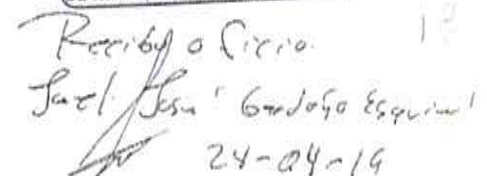 Reciby oficio
Jael Josue Gardoño Esquivel
24-04-19